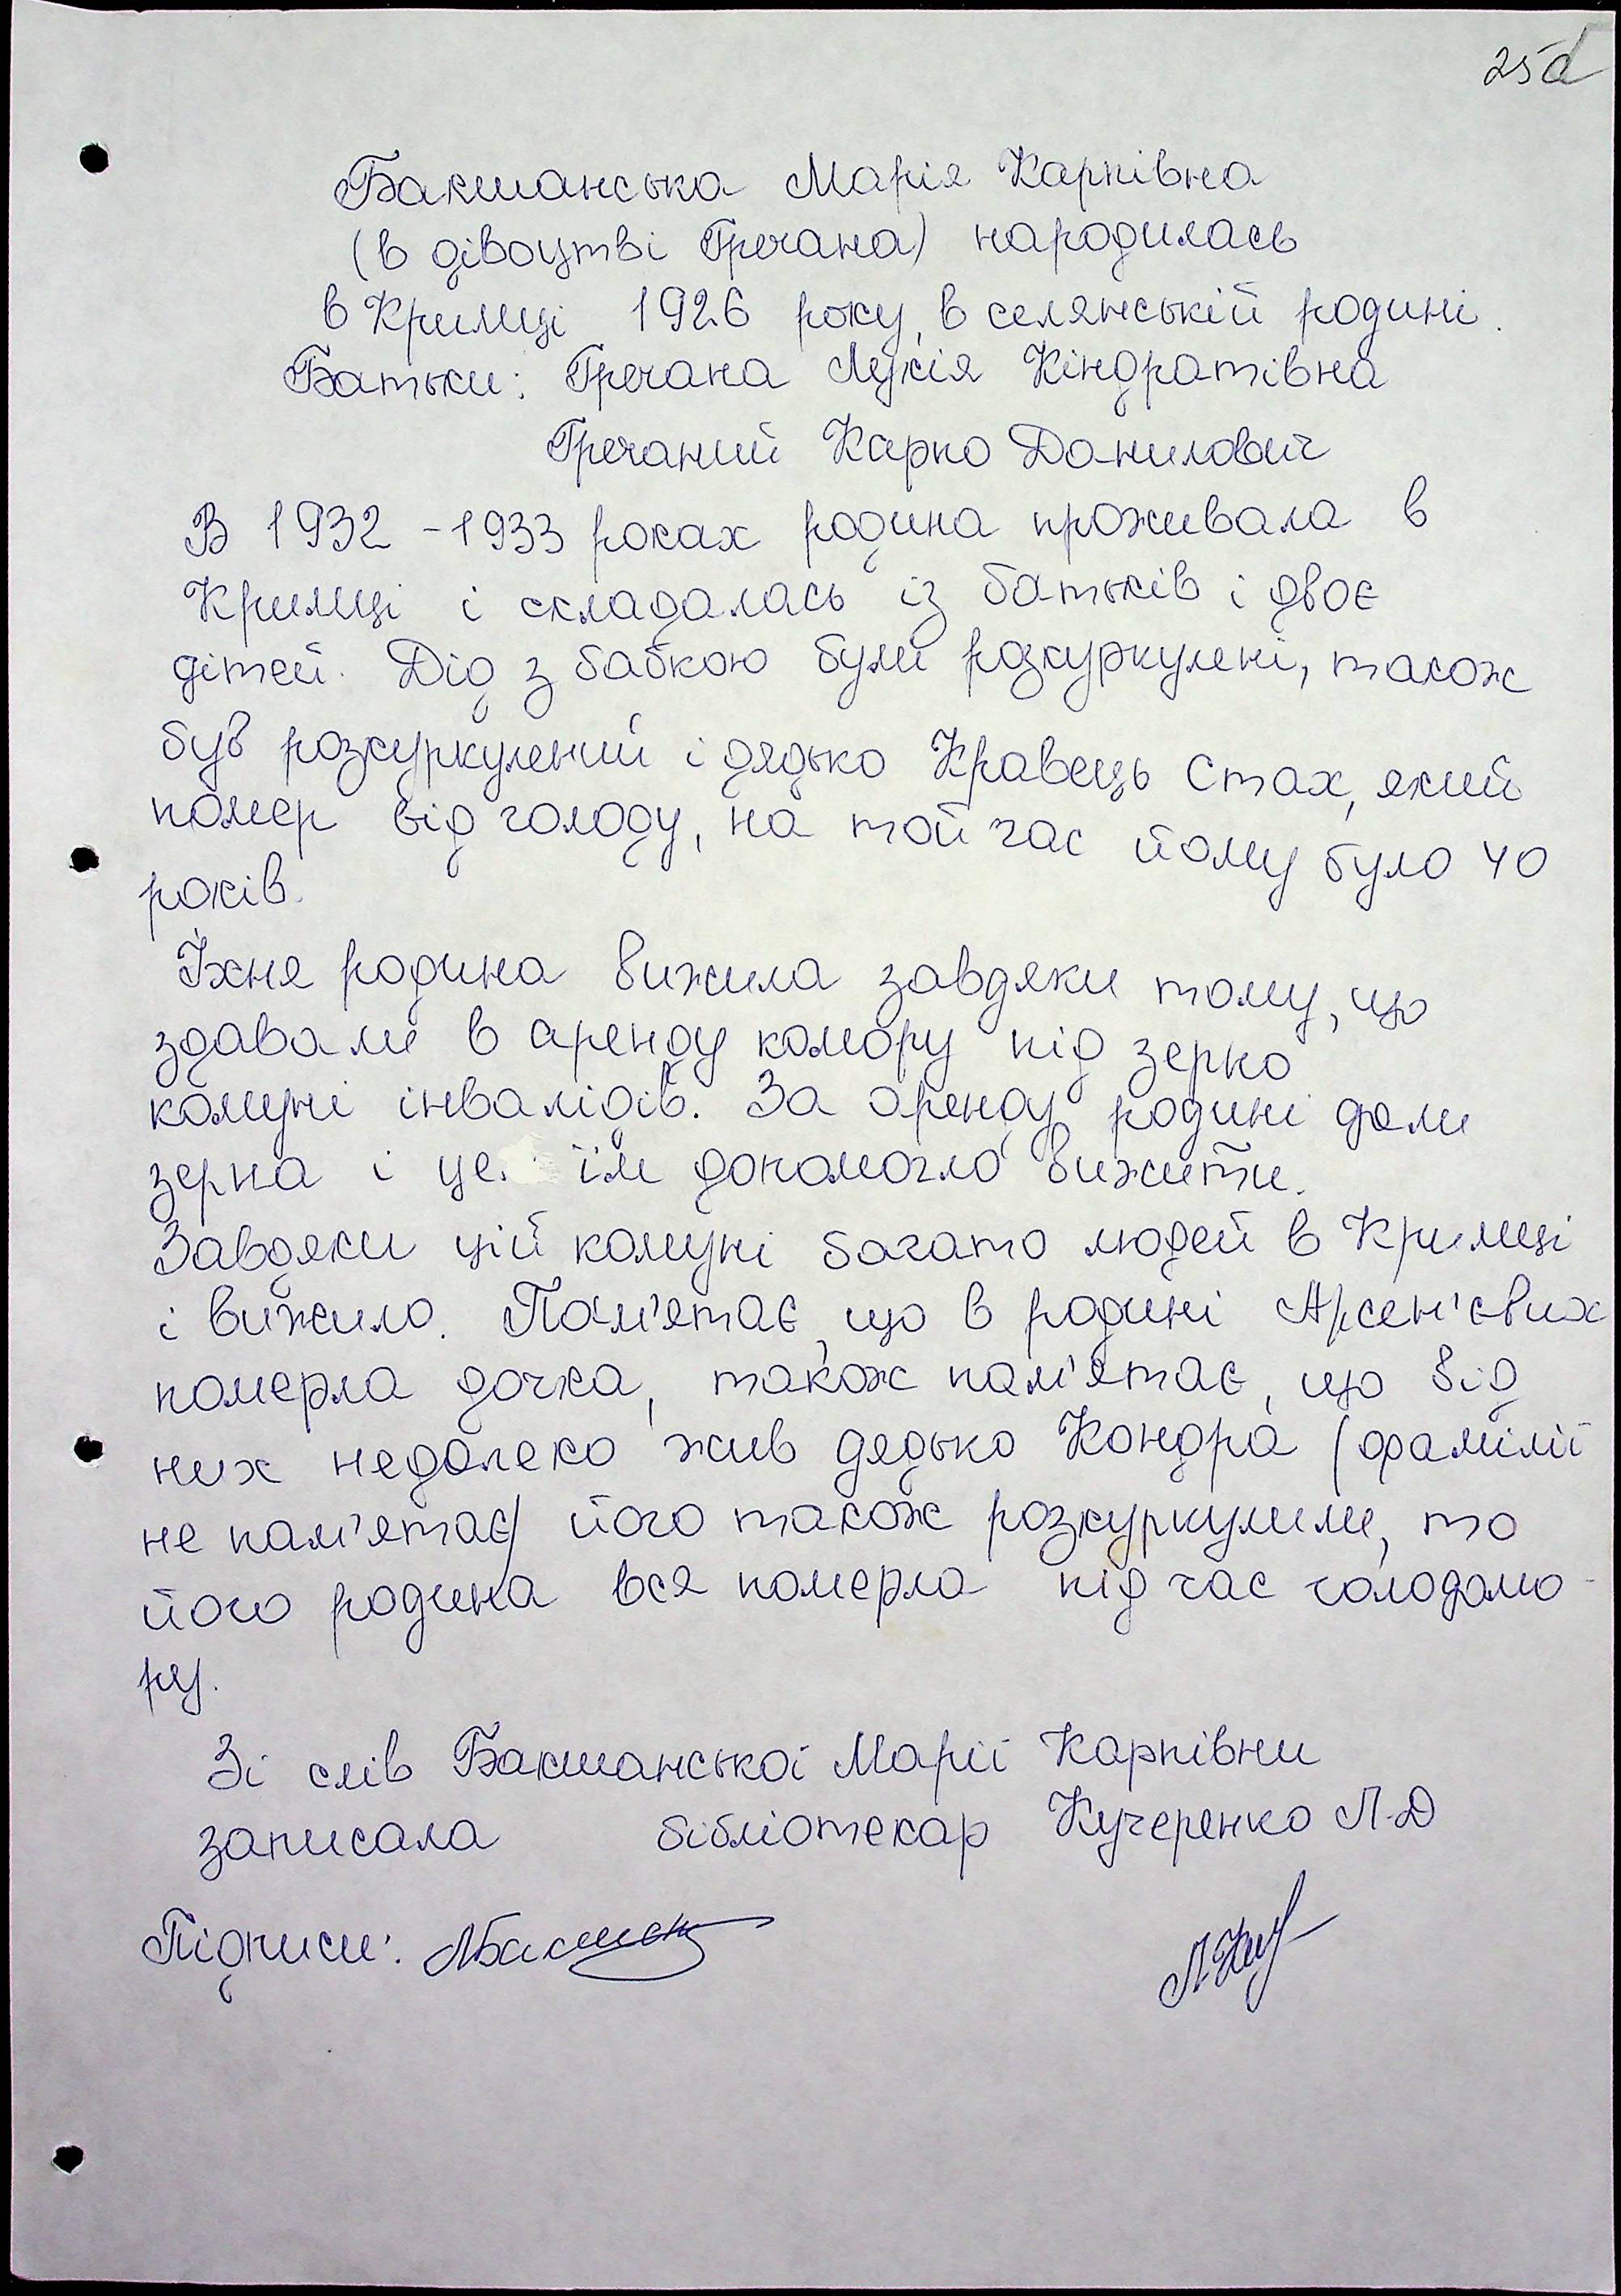 25
Бакшанська Марія Карпівна
(в дівоцтві Гречана) народилась
в Кримці 1926 року, в селянській родині.
Батьки: Гречана Лукія Кіндратівна
Гречаний Карпо Данилович
В 1932-1933 роках родина проживала в
Кримці і складалась із батьків і двоє
дітей. Дід з бабкою були розкуркулені, також
був розкуркулений і дядько Кравець Стах, який
помер від голоду, на той час йому було 40
років.
Їхня родина вижила завдяки тому, що
здавали в аренду комору під зерно
комуні інвалідів. За аренду родині дали
зерна і це їм допомогло вижити.
Завдяки цій комуні богато людей в Кримці
і вижило. Пам'ятає, що в родині Арсен'євих
померла дочка, також пам'ятає, що від
них недалеко жив дядько Кондра (фамілії
не пам'ятає) його також розкуркулили, то
його родина вся померла під час голодомо-
ру.
Зі слів Бакшанської Марії Карпівни
записала бібліотекар Кучеренко Л.Д
Підписи: